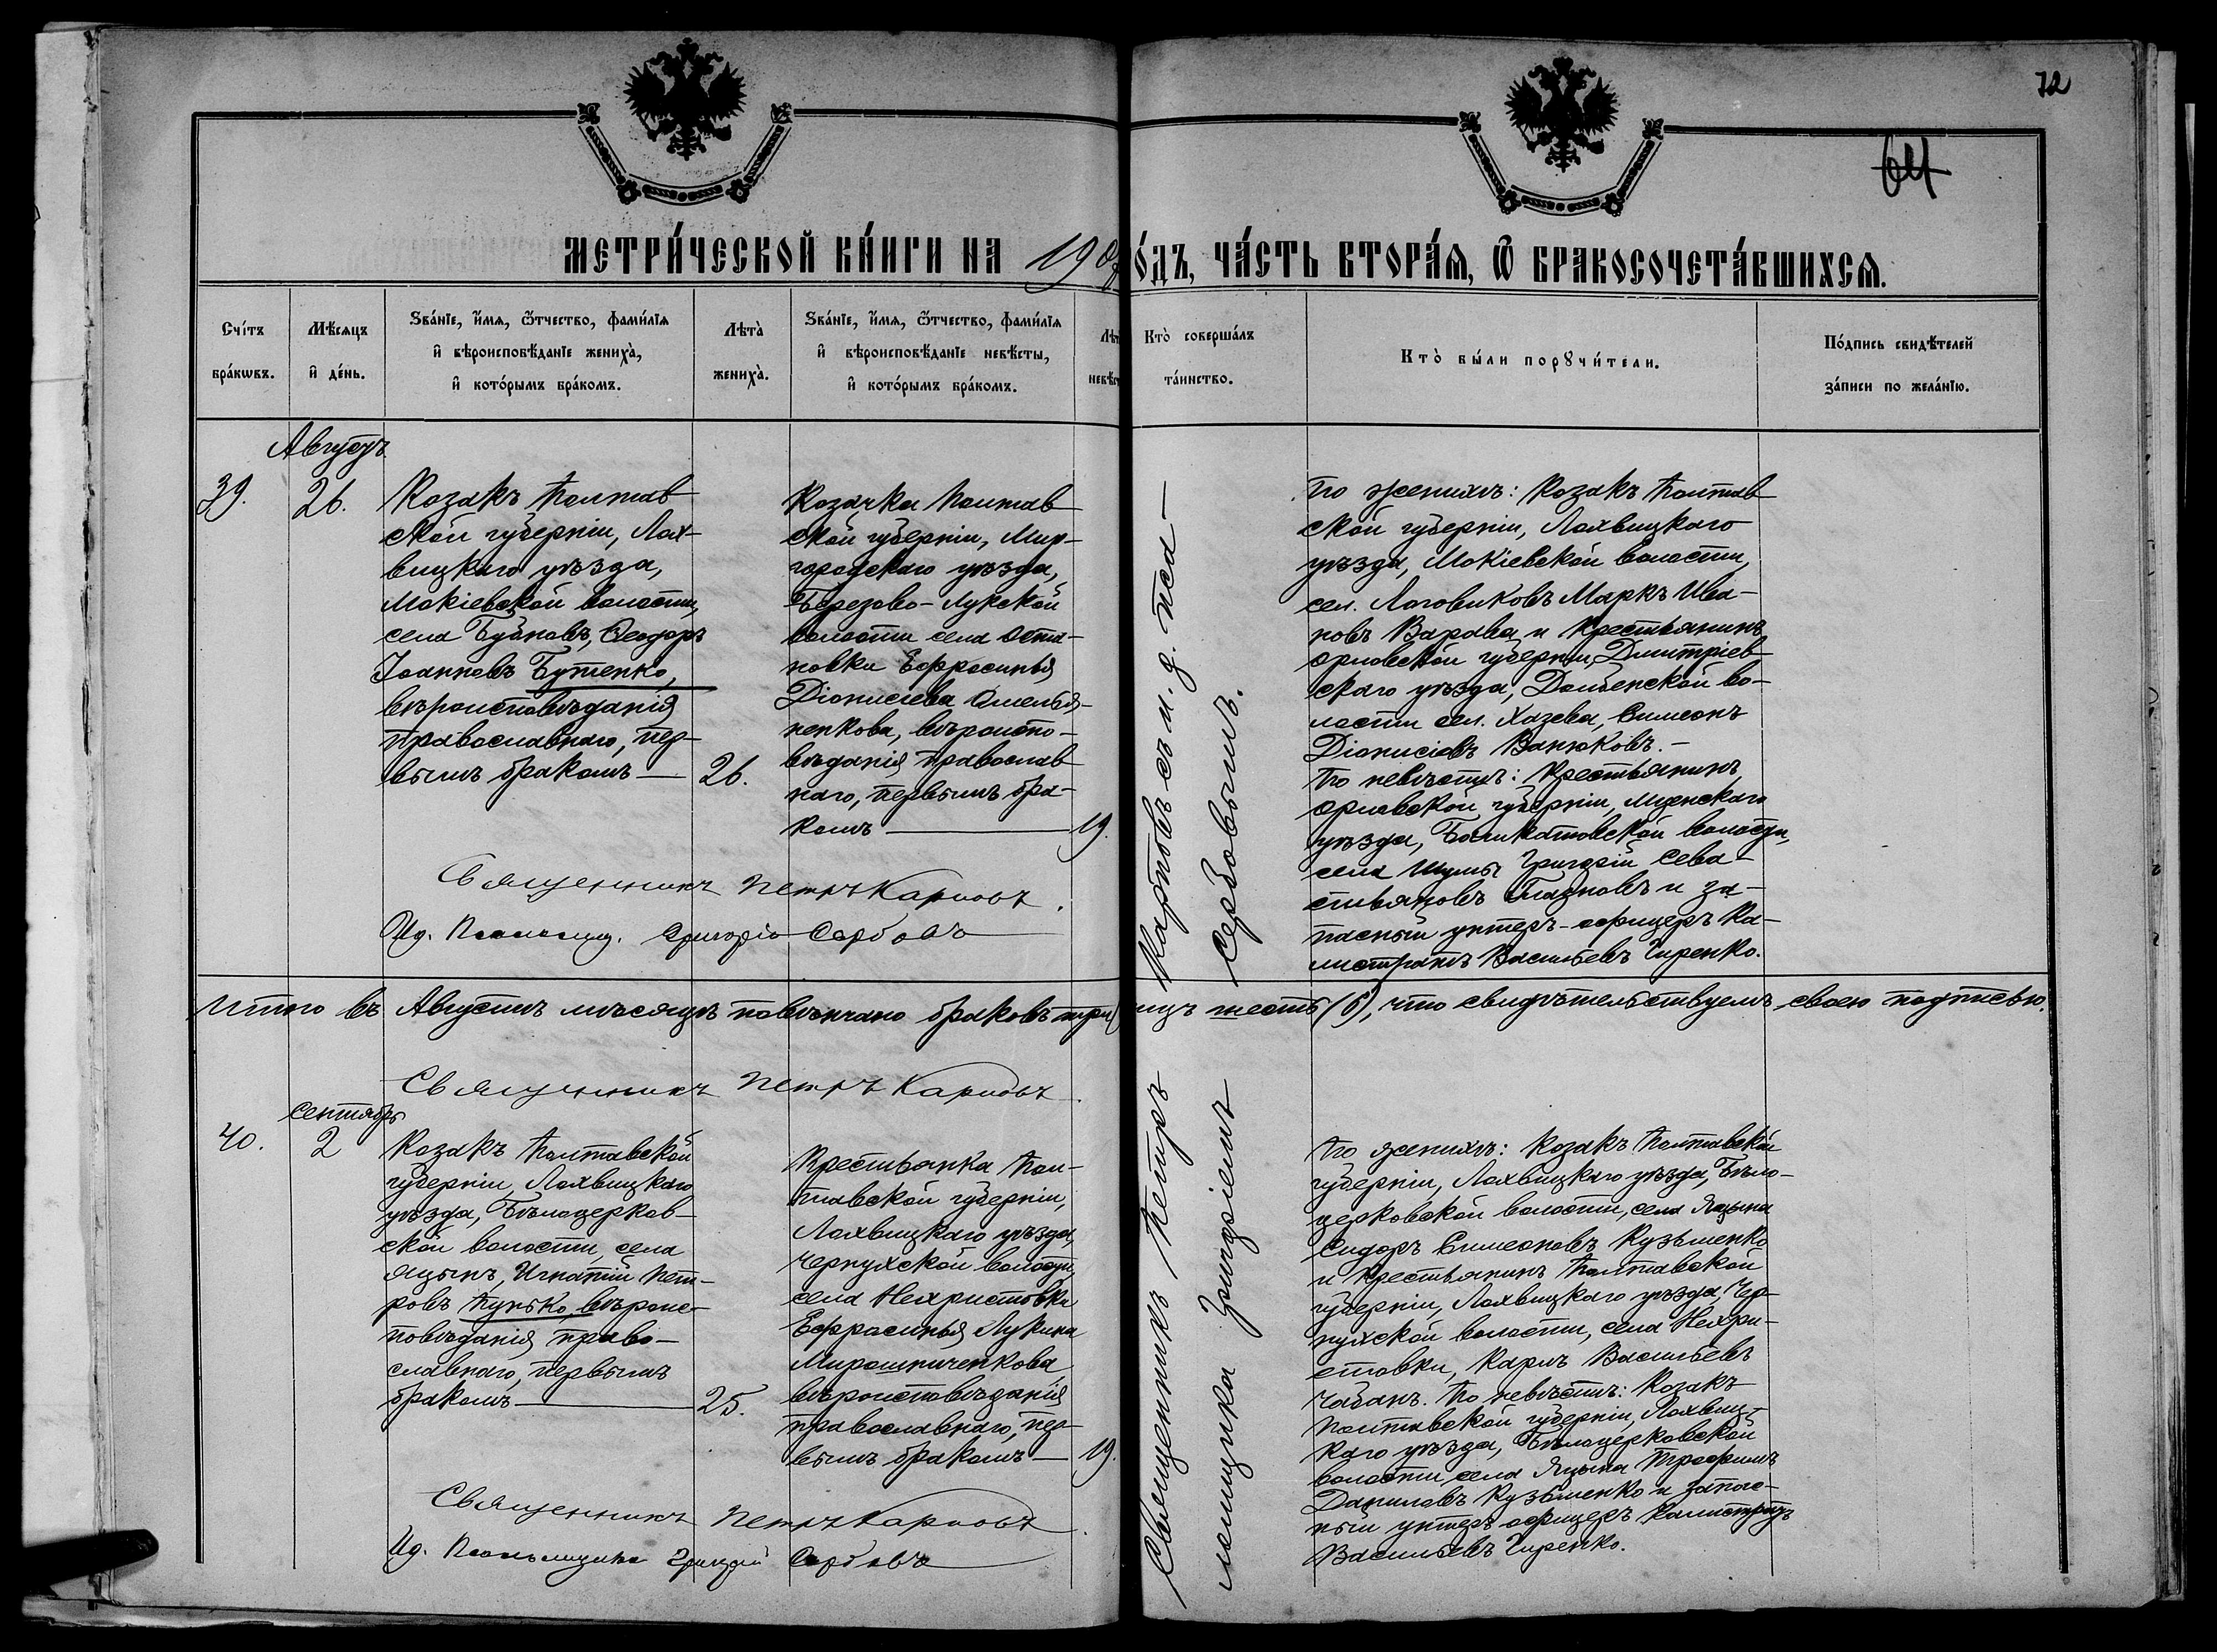 72
64
МЕТРИ́ЧЕСКОЙ КНИ́ГИ НА 190
О́ДЪ, ЧА́СТЬ ВТОРА́Я, Ѿ БРАКОСОЧЕТА́ВШИХСЯ.
Сче́тъ бра́кѡвъ.
Мѣ́сяцъ и де́нь.
Зва́нїе, и҆́мя, ѻ҆́тчество, фами́лїя и҆ вѣроисповѣ́данїе жениха̀, и҆ кото́рымъ бра́комъ.
Лѣта̀ жениха̀.
Зва́нїе, и҆́мя, ѻ҆́тчество, фами́лїя и҆ вѣроисповѣ́данїе невѣ́сты, и҆ кото́рымъ бра́комъ.
Лѣт невѣс
Кто̀ соверша́лъ та́инство.
Кто̀ бы́ли порꙋчи́тели.
По́дпись свидѣ́телей за́писи по жела́нїю.
Августъ
39.
26.
Козакъ Полтав
ской губерніи, Лох-
вицкаго уѣзда,
Мокіевской волости,
села Бубновъ, Ѳеодоръ
Іоанновъ Бутенко,
вѣроисповѣданія
православнаго, пер-
вымъ бракомъ —
26.
Козачка Полтав
ской губерніи, Мир-
городскаго уѣзда,
Березово-Лукской
волости села Оста-
повки Ефросинья
Діонисіева Омелья-
ненкова, вѣроиспо-
вѣданія православ
наго, первымъ бра-
комъ —
19.
Священникъ Петръ Карповъ.
Ид. Псаломщ. Григорій Сербовъ
Священникъ Петръ Карповъ съ и. д. пса-
ломщика Григоріемъ Сербовымъ.
По женихѣ: Козакъ Полтав
ской губерніи, Лохвицкаго
уѣзда, Мокіевской волости,
сел. Лаговиковъ Маркъ Ива-
новъ Варава и Крестьянинъ
Орловской губерніи, Дмитріев
скаго уѣзда, Долбенской во-
лости сел. Хазева, Симеонъ
Діонисіевъ Ванюковъ. —
По невѣстѣ: Крестьянинъ
Орловской губерніи, Мценскаго
уѣзда, волости,
села Григорій Сева-
стьяновъ и за-
пасный унтеръ-офицеръ Ка-
листратъ Васильевъ Гиренко.
Итого въ Августѣ мѣсяцѣ повѣнчано браковъ при
ицъ шесть (6), что свидѣтельствуемъ своею подписью.
Священникъ Петръ Карповъ.
сентябрь
40.
2
Козакъ Полтавской
губерніи, Лохвицкаго
уѣзда, Бѣлоцерков-
ской волости, села
Яцынъ, Игнатій Пет-
ровъ Пунько, вѣроис-
повѣданія право-
славнаго, первымъ
бракомъ —
25.
Крестьянка Пол-
тавской губерніи,
Лохвицкаго уѣзда
Чернухской волости,
села Нехристовки
Ефросинья Лукина
Мирошниченкова
вѣроисповѣданія
православнаго, пер-
вымъ бракомъ —
19.
Священникъ Петръ Карповъ.
Ид. Псаломщика Григорій Сербовъ
По женихѣ: Козакъ Полтавской
губерніи, Лохвицкаго уѣзда, Бѣло-
церковской волости, села Яцына
Сидоръ Симеоновъ Кузьменко
и Крестьянинъ Полтавской
губерніи, Лохвицкаго уѣзда, Чер-
нухской волости, села Нехри-
стовки, Карпъ Васильевъ
Чабанъ. По невѣстѣ: Козакъ
Полтавской губерніи, Лохвиц-
каго уѣзда, Бѣлоцерковской
волости, села Яцына Трофимъ
Даниловъ Кузьменко и запас-
ный унтеръ офицеръ Калистратъ
Васильевъ Гиренко.